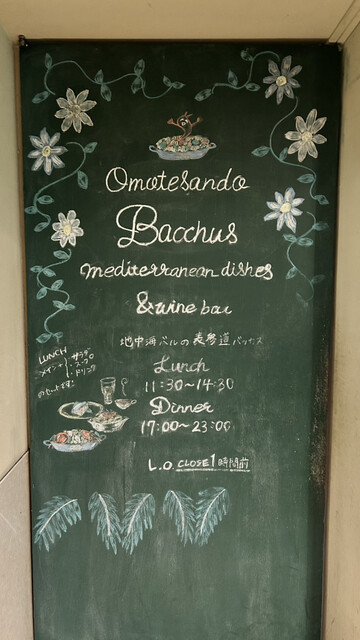 Omotesando
Bacchus
mediterranean dishes
& wine bar
地中海バルの表参道バッカス
LUNCH
メイン+ サラダ
・スープ
・ドリンク
のセットです!
Lunch
11:30~14:30
Dinner
17:00~23:00
L.O. CLOSE1時間前